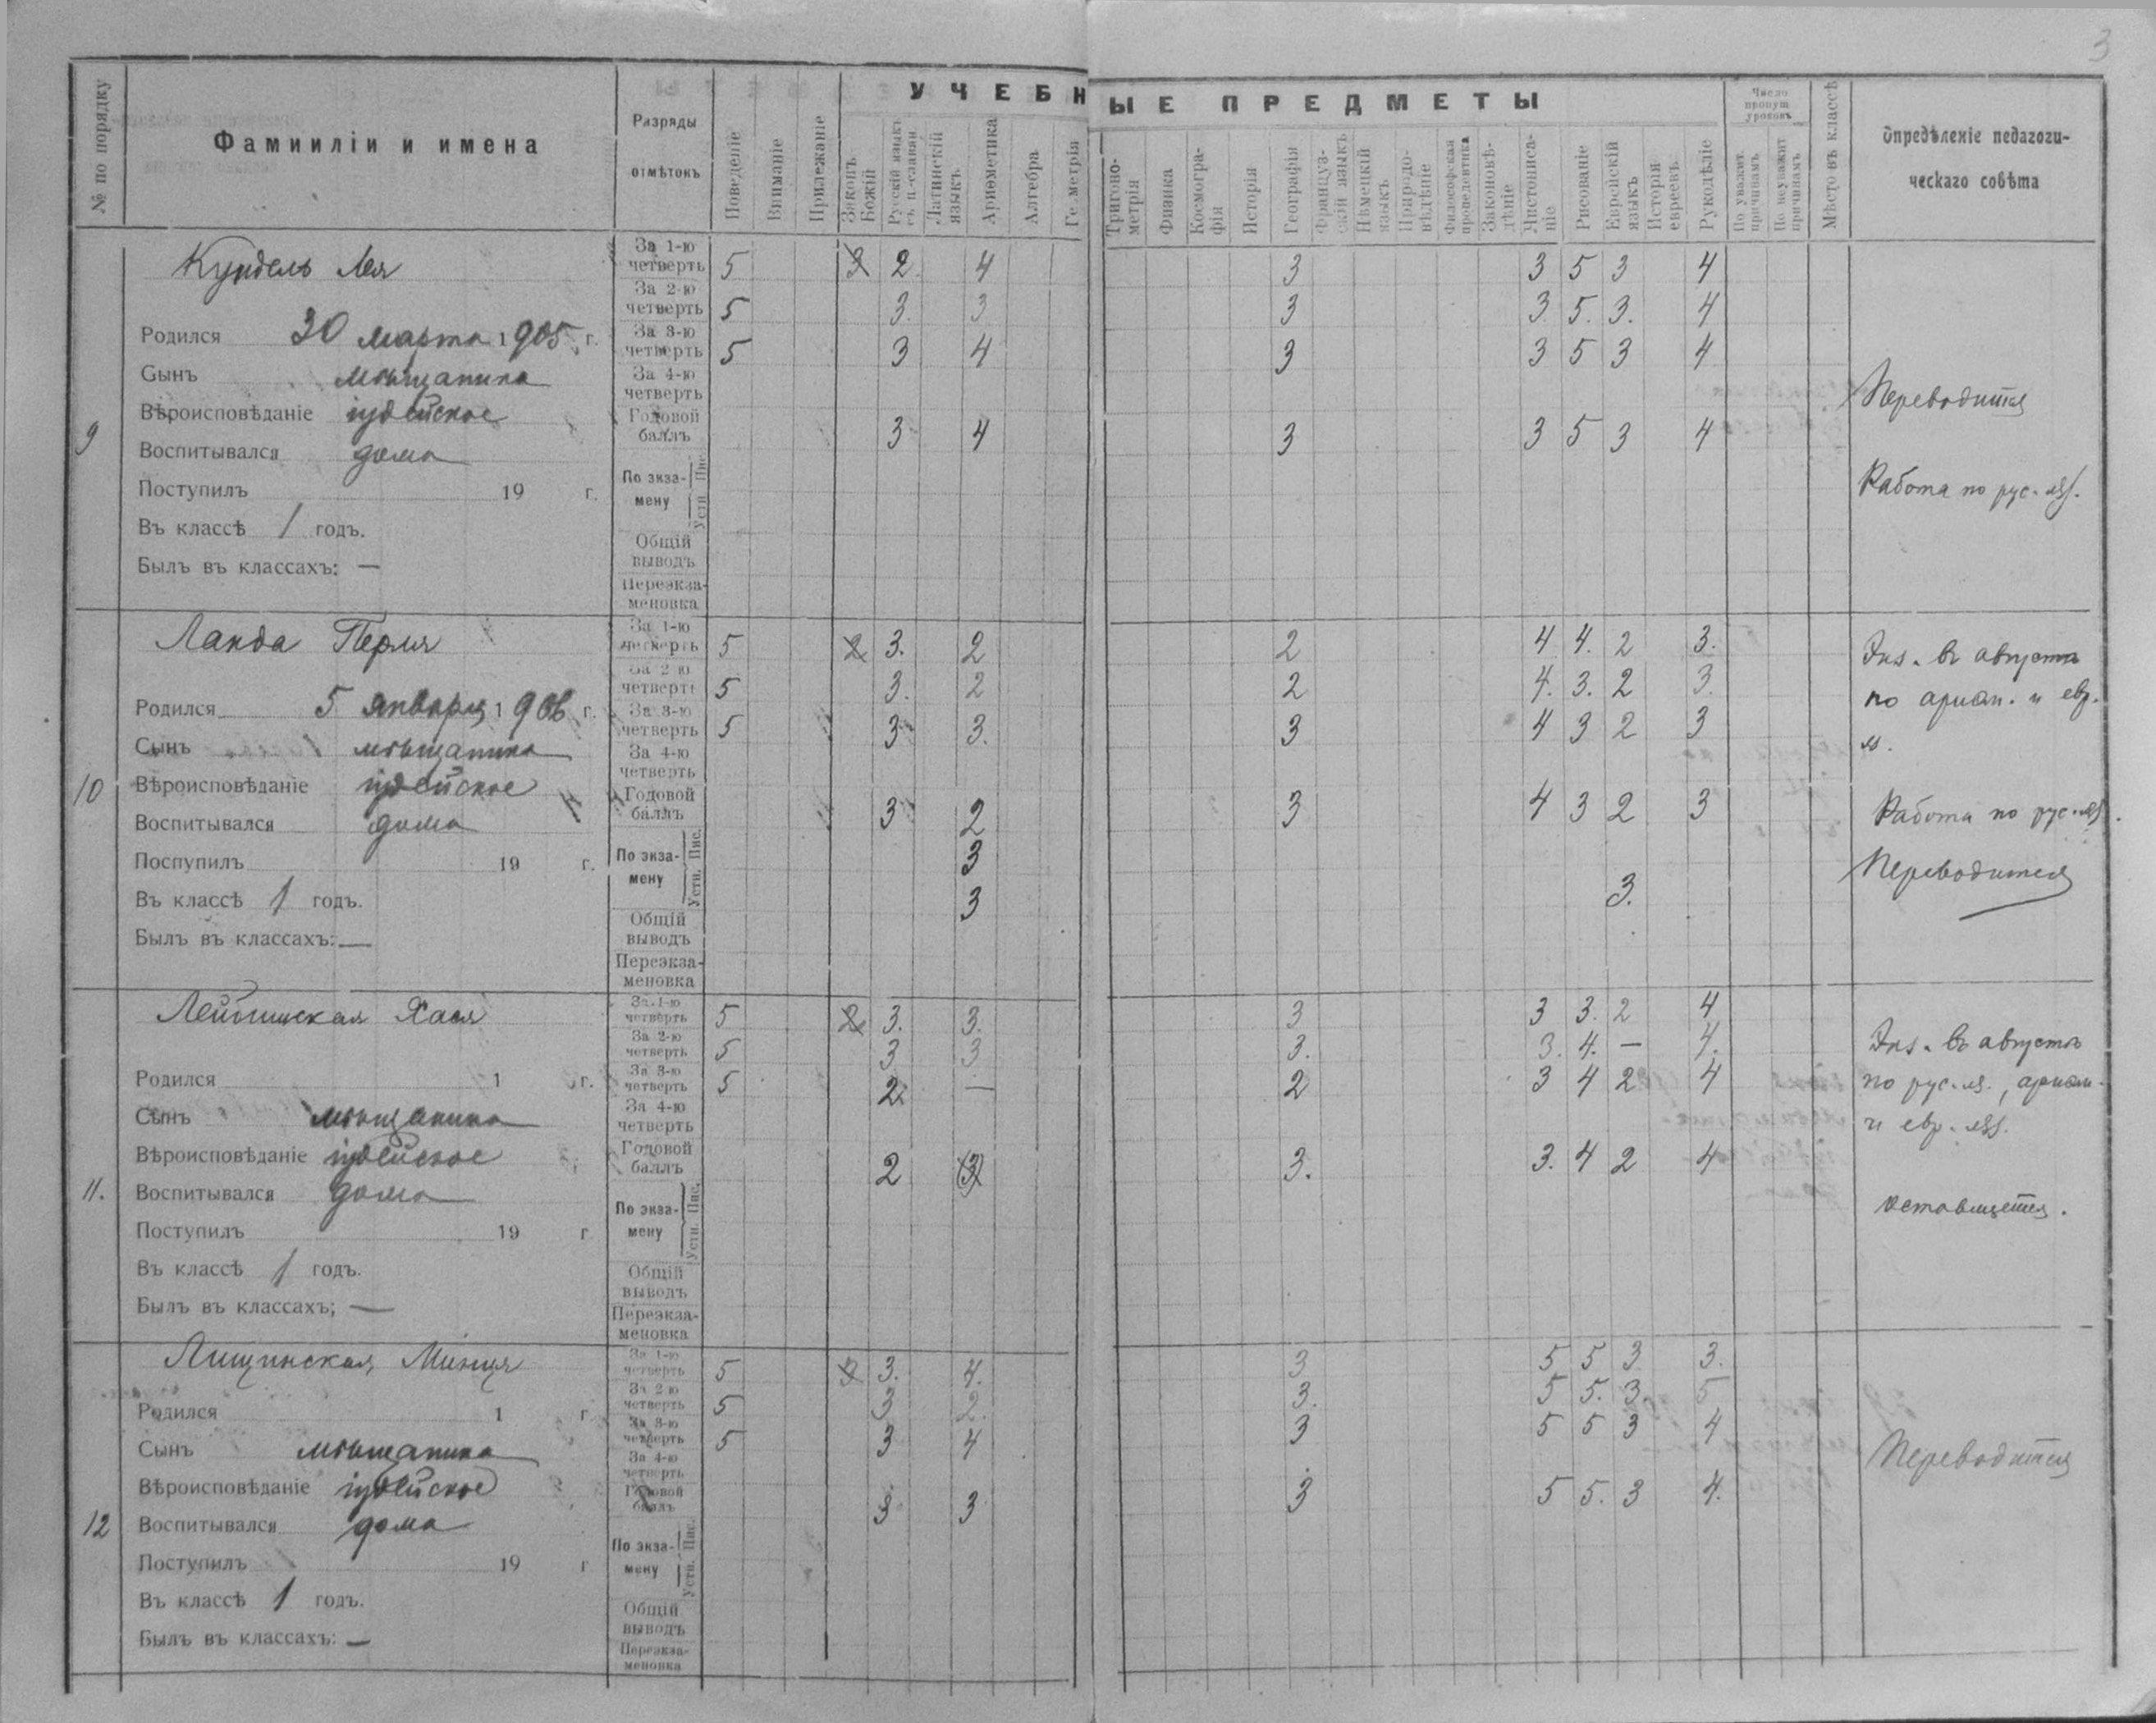 3
УЧЕБНЫЕ ПРЕДМЕТЫ
№ по порядку
Фамииліи и имена
Разряды отмѣтокъ
Поведеніе
Вниманіе
Прилежаніе
Законъ Божій
Русскій языкъ съ ц-славян.
Латинскій языкъ
Ариѳметика
Алгебра
Геметрія
Тригонометрія
Физика
Космографія
Исторія
Географія
Французскій языкъ
Нѣмецкій языкъ
Природовѣдѣніе
Философская пропедевтика
Законовѣдѣніе
Чистописаніе
Рисованіе
Еврейскій языкъ
Исторія евреевъ
Рукодѣліе
Число пропущ уроковъ
По уважит причинамъ
По неуважит причинамъ
Мѣсто въ классѣ
Опредѣленіе педагогическаго совѣта
9
Кундель Лея
Родился 30 марта 1905 г.
Сынъ мѣщанина
Вѣроисповѣданіе іудейское
Воспитывался дома
Поступилъ 19 г.
Въ классѣ 1 годъ.
Былъ въ классахъ: —
За 1-ю четверть 5 2 2. 4 3 3 5 3 4
За 2-ю четверть 5 3. 3 3 3. 5. 3. 4
За 3-ю четверть 5 3 4 3 3 5 3 4
За 4-ю четверть
Годовой баллъ 3 4 3 3 5 3 4
По экзамену Пис. Устн
Общій выводъ
Переэкзаменовка
Переводится
Работа по рус. яз.
10
Ланда Перля
Родился 5 января 1906 г.
Сынъ мѣщанина
Вѣроисповѣданіе іудейское
Воспитывался дома
Поспупилъ 19 г.
Въ классѣ 1 годъ.
Былъ въ классахъ: —
За 1-ю четверть 5 2 3. 2 2 4 4. 2 3.
За 2-ю четверть 5 3. 2 2 4. 3. 2 3.
За 3-ю четверть 5 3 3. 3 4 3 2 3
За 4-ю четверть
Годовой баллъ 3 2 3 4 3 2 3
По экзамену Пис. 3
Устн. 3 3.
Общій выводъ
Переэкзаменовка
Экз. въ августѣ
по ариѳм. и евр.
яз.
Работа по рус. яз.
Переводится
11.
Лейбишская Хася
Родился 1 г.
Сынъ мѣщанина
Вѣроисповѣданіе іудейское
Воспитывался дома
Поступилъ 19 г
Въ классѣ 1 годъ.
Былъ въ классахъ; —
За 1-ю четверть 5 2 3. 3. 3 3 3. 2 4
За 2-ю четверть 5 3 3 3. 3. 4. — 4.
За 3-ю четверть 5 2. — 2 3 4 2 4
За 4-ю четверть
Годовой баллъ 2 (3) 3. 3. 4 2 4
По экзамену Пис. Устн.
Общій выводъ
Переэкзаменовка
Экз. въ августѣ
по рус. яз., ариѳм.
и евр. яз.
оставляется.
12
Лищинская Минця
Родился 1 г.
Сынъ мѣщанина
Вѣроисповѣданіе іудейское
Воспитывался дома
Поступилъ 19 г
Въ классѣ 1 годъ.
Былъ въ классахъ: —
За 1-ю четверть 5 3. 4. 3 5 5 3 3.
За 2-ю четверть 5 3 2. 3. 5 5. 3. 5
За 3-ю четверть 5 3 4 3 5 5 3 4
За 4-ю четверть
Годовой баллъ 3 3 3 5 5. 3 4.
По экзамену Пис. Устн.
Общій выводъ
Переэкзаменовка
Переводится